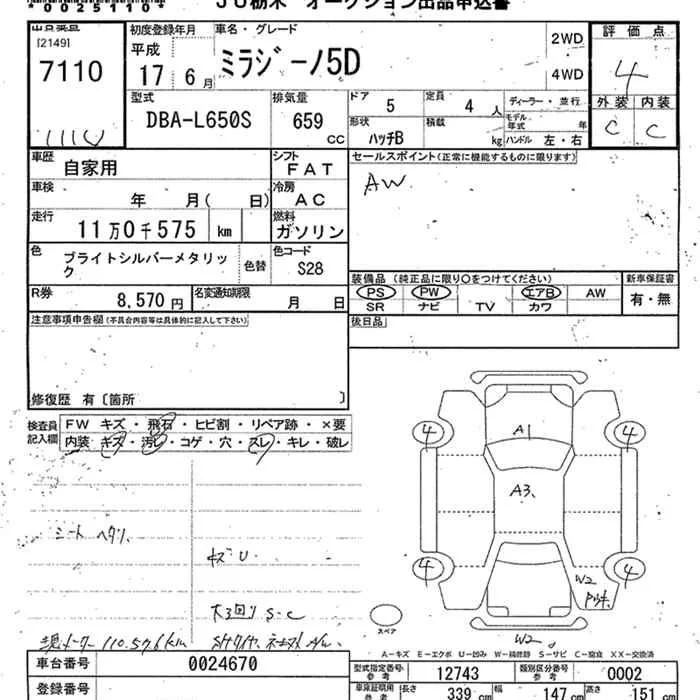 *0025110*
JU栃木 オークション出品申込書
[2149]
7110
初度登録年月
平成
17年 6月
車名・グレード
ミラジーノ5D
2WD
4WD
評価点
4
外装 内装
C C
型式
DBA-L650S
排気量
659 CC
ドア 5
定員 4 人
ディーラー・並行
モデル年式 年
形状
ハッチB
積載 kg
ハンドル 左・右
車歴
自家用
シフト
FAT
セールスポイント(正常に機能するものに限ります)
AW
車検
年 月( 日)
冷房
AC
走行
11万0千575 km
燃料
ガソリン
色
ブライトシルバーメタリック
色替
色コード
S28
装備品 (純正品に限り○をつけてください)
新車保証書
PS PW エアB AW
有・無
SR ナビ TV カワ
R券
8,570円
名変通知期限
月 日
後日品
注意事項申告欄(不具合内容等は具体的に記入して下さい)
修復歴 有〔箇所 〕
検査員記入欄
FW キズ・飛石・ヒビ割・リペア跡・×要
内装 キズ・汚レ・コゲ・穴・スレ・キレ・破レ
A1
4 4
A3、
シート ヘタリ、
キズ U
W2
4 4
下回り S-C
スペア
現メーター 110,576km
W2
A-キズ E-エクボ U-凹み W-補修跡 S-サビ C-腐食 XX-交換済
車台番号
0024670
型式指定番号参考
12743
類別区分番号参考
0002
登録番号
車庫証明用参考
長さ 339 cm
幅 147 cm
高さ 151 cm